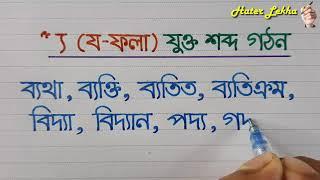 Hater Lekha
* ্য (য-ফলা) যুক্ত শব্দ গঠন
ব্যথা, ব্যক্তি, ব্যতিত, ব্যতিক্রম,
বিদ্যা, বিদ্যান, পদ্য, গদ